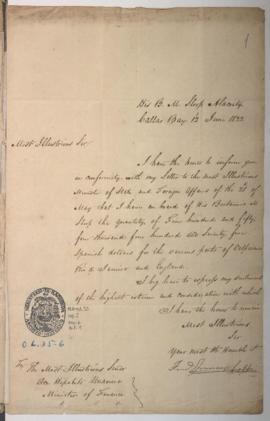 1
His B. M. Sloop Alacrity
Callao Bay 12 June 1822
Most Illustrious Sir
I have the honor to inform you
in conformity with my Letter to the most Illustrious
Minister of State and Foreign Affairs of the
of May that I have on board of His Britannic M.
Sloop the quantity of Five hundred and fifty
four thousand four hundred and Seventy four
Spanish dollars for the various ports of
Rio de Janeiro and England.
I beg leave to express my sentiments
of the highest esteem and consideration with which
I have the honor to remain
Most Illustrious
Sir
Your most Ob. Humble St.
To The Most Illustrious Señor
Don Hipolito Unanue
Minister of Finance
O.L. 35-6